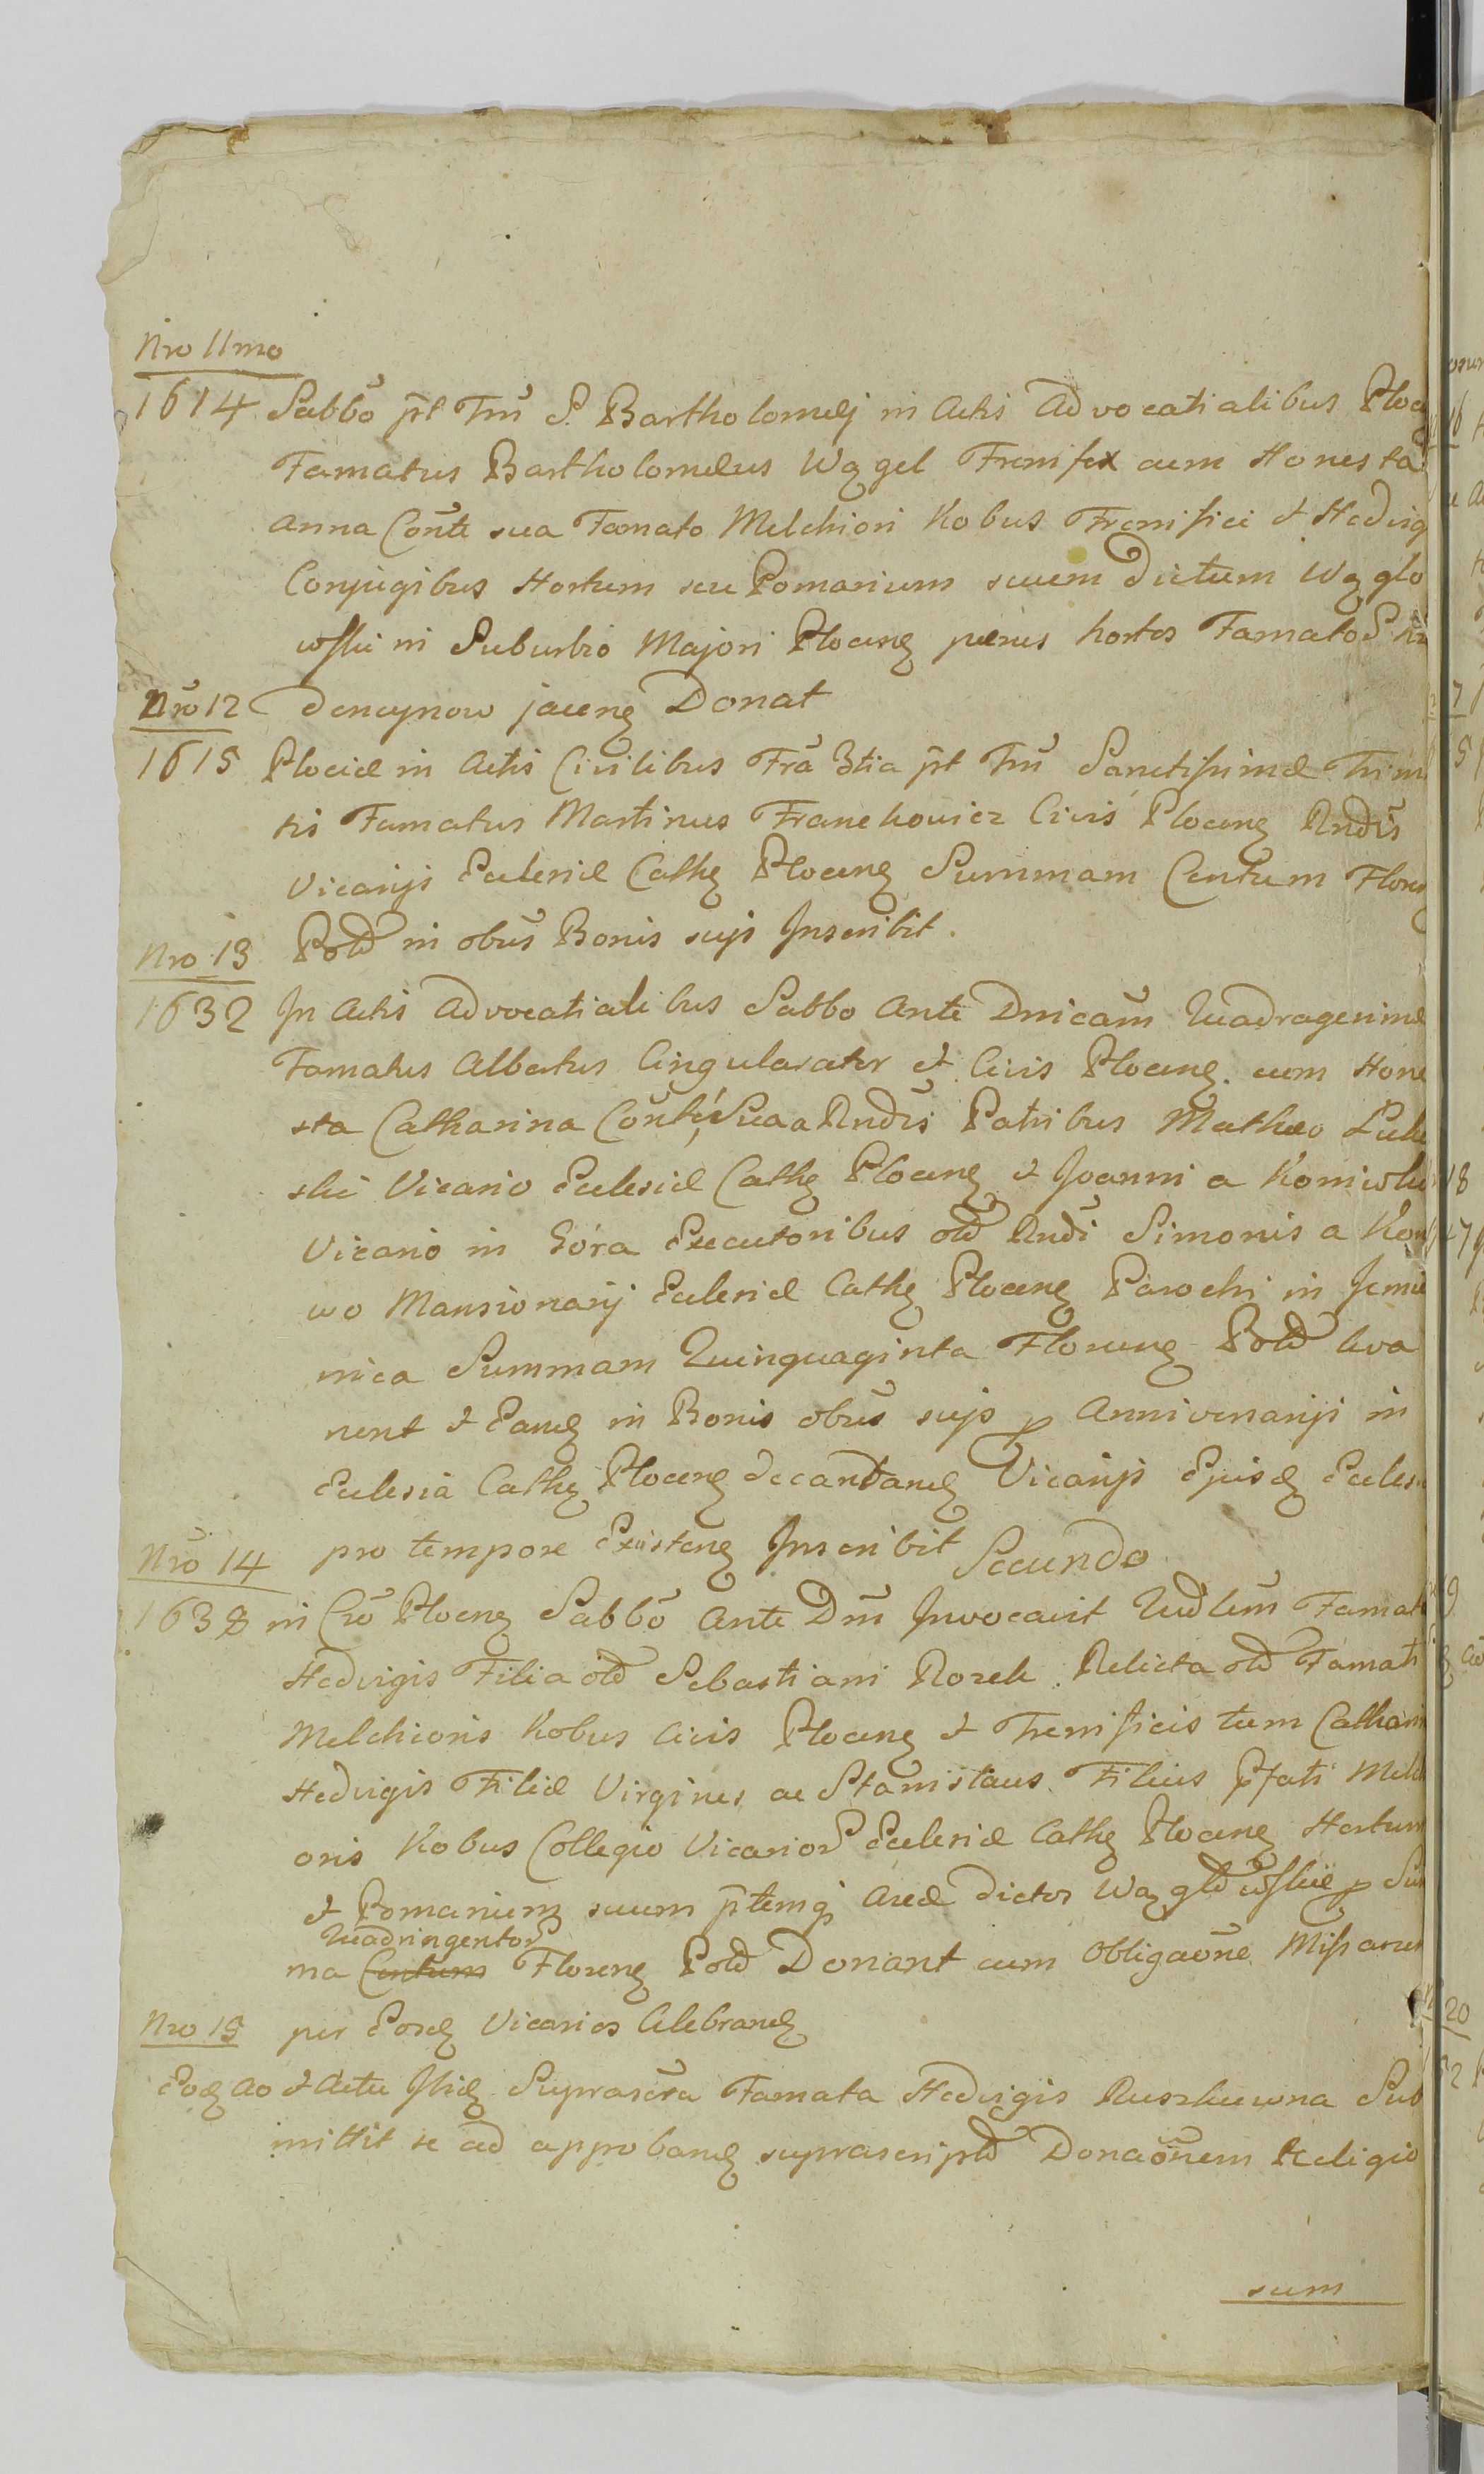 Nro 11mo
1614 Sabbō p̄t Frū S. Bartholomæj in Actis Advocatialibus Ploc
Famatus Bartholomæus Wągel Frenifex cum Honesta
Anna Con̄te sua Famato Melchiori Kobus Frenifici & Hedvig
Conjugibus Hortum seu Pomarium suum dictum Wąglo
wskie in Suburbio Majori Plocenȝ penes hortos Famatoꝝ
Nro 12 dencynow jacenȝ Donat
1615 Plociæ in Actis Civilibus Frā 3tia p̄t Frū Sanctissimæ Trini
tis Famatus Martinus Franckowicz Civis Plocenȝ Rndīs
Vicarijs Ecclesiæ Cathȝ Plocenȝ Summam Centum Florenȝ
Nro 13 Pold in obūs Bonis sujs Inscribit.
1632 In Actis Advocatialibus Sabbo Ante Dnicam̄ Quadragesimæ
Famatus Albertus Cingularator et Civis Plocenȝ cum Hone
sta Catharina Con̄te Sua Rndīs Patribus Mathæo
ski Vicario Ecclesiæ Cathȝ Plocenȝ & Joanni a
Vicario in Góra Executoribus old Rndi Simonis a
wo Mansionarij Ecclesiæ Cathȝ Plocenȝ Parochi in Jemie
nica Summam Quinquaginta Florenȝ Pold leva
nent & Eamȝ in Bonis obūs sujs p Anniversarijs in
Ecclesia Cathȝ Plocenȝ decantandȝ Vicarijs Ejusdȝ Eccles
pro tempore Existenȝ Inscribit Secundo
Nro 14
1638 in Crō Plocenȝ Sabbō Ante Dnī Invocavit Famat
Hedvigis Filia old Sebastiani Rozek Relicta old Famati
Melchioris Kobus Civis Plocenȝ & Frenificis tum Cathari
Hedvigis Filiæ Virgines ac Stanislaus Filius p̄fati Melch
oris Kobus Collegio Vicarioꝝ Ecclesiæ Cathȝ Plocenȝ Hortum
& Pomarium suum p̄temq Areæ dictos Wąglowskie p Sum
Quadringentoꝝ
ma Centum Florenȝ Pold Donant cum Obligaōne Missarum
Nro 15 per Eosdȝ Vicarios Celebrandȝ
Eodȝ Ao & Actu Ibidȝ Suprascr̄a Famata Hedvigis Ruszkuwna Sub
mittit se ad approbandȝ suprascriptā Donaōnem Religio
sum